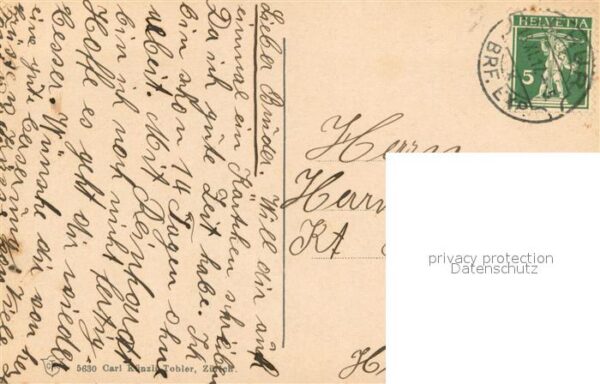 Lieber Bruder. Will dir auch
einmal ein Kärtchen schreiben
Da ich gute Zeit habe. Ich
bin schon 14 Tagen ohne
arbeit. Mit
bin ich noch nicht fertig
Hoffe es geht dir wieder
besser. Wünsche dir von her
eine gute besserung
Herrn
Herm
Kt
H
HELVETIA
5
BRF. EXP.
privacy protection
Datenschutz
5630 Carl Künzli-Tobler, Zürich.